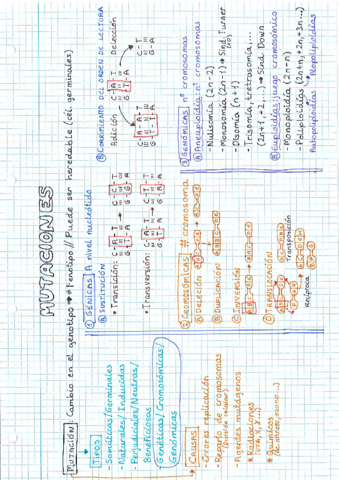 MUTACIONES
MUTACIÓN: Cambio en el genotipo → ≠ Fenotipo // Puede ser heredable (cél. germinales)
TIPOS
- Somáticas/Germinales
- Naturales/Inducidas
- Perjudiciales/Neutras/
Beneficiosas
- Genéticas/Cromosómicas/
Genómicas
CAUSAS
- Errores replicación
- Reparto de cromosomas
(División celular)
- Agentes mutágenos
* Radiaciones
(UVA, X, γ...)
* Químicos
(Ác. nitroso, ...)
① GÉNICAS A nivel nucleótido
Ⓐ SUSTITUCIÓN
• Transición:
C-A-T → C-G-T
• Transversión:
Ⓑ CORRIMIENTO DEL ORDEN DE LECTURA
Adición
Deleción
② Cromosómicas ≠ cromosoma
Ⓐ DELECIÓN
Ⓑ DUPLICACIÓN
Ⓒ INVERSIÓN
Ⓓ TRANSLOCACIÓN
Transposición
Recíproca
③ GENÓMICAS nº cromosomas
Ⓐ Aneuploidía: nº cromosomas
- Nulisomía (2n-2)
- Monosomía (2n-1) → Sínd. Turner
(X0)
- Disomía (n+1)
- Trisomía, tretrasomía,...
(2n+1, +2, ...) → Sínd Down
Ⓑ Euploidías: juego cromosómico
- Monoploidía (2n-n)
- Poliploidías (2n+n, 2n+2n, +3n...)
Autopoliploidías Alopoliploidías